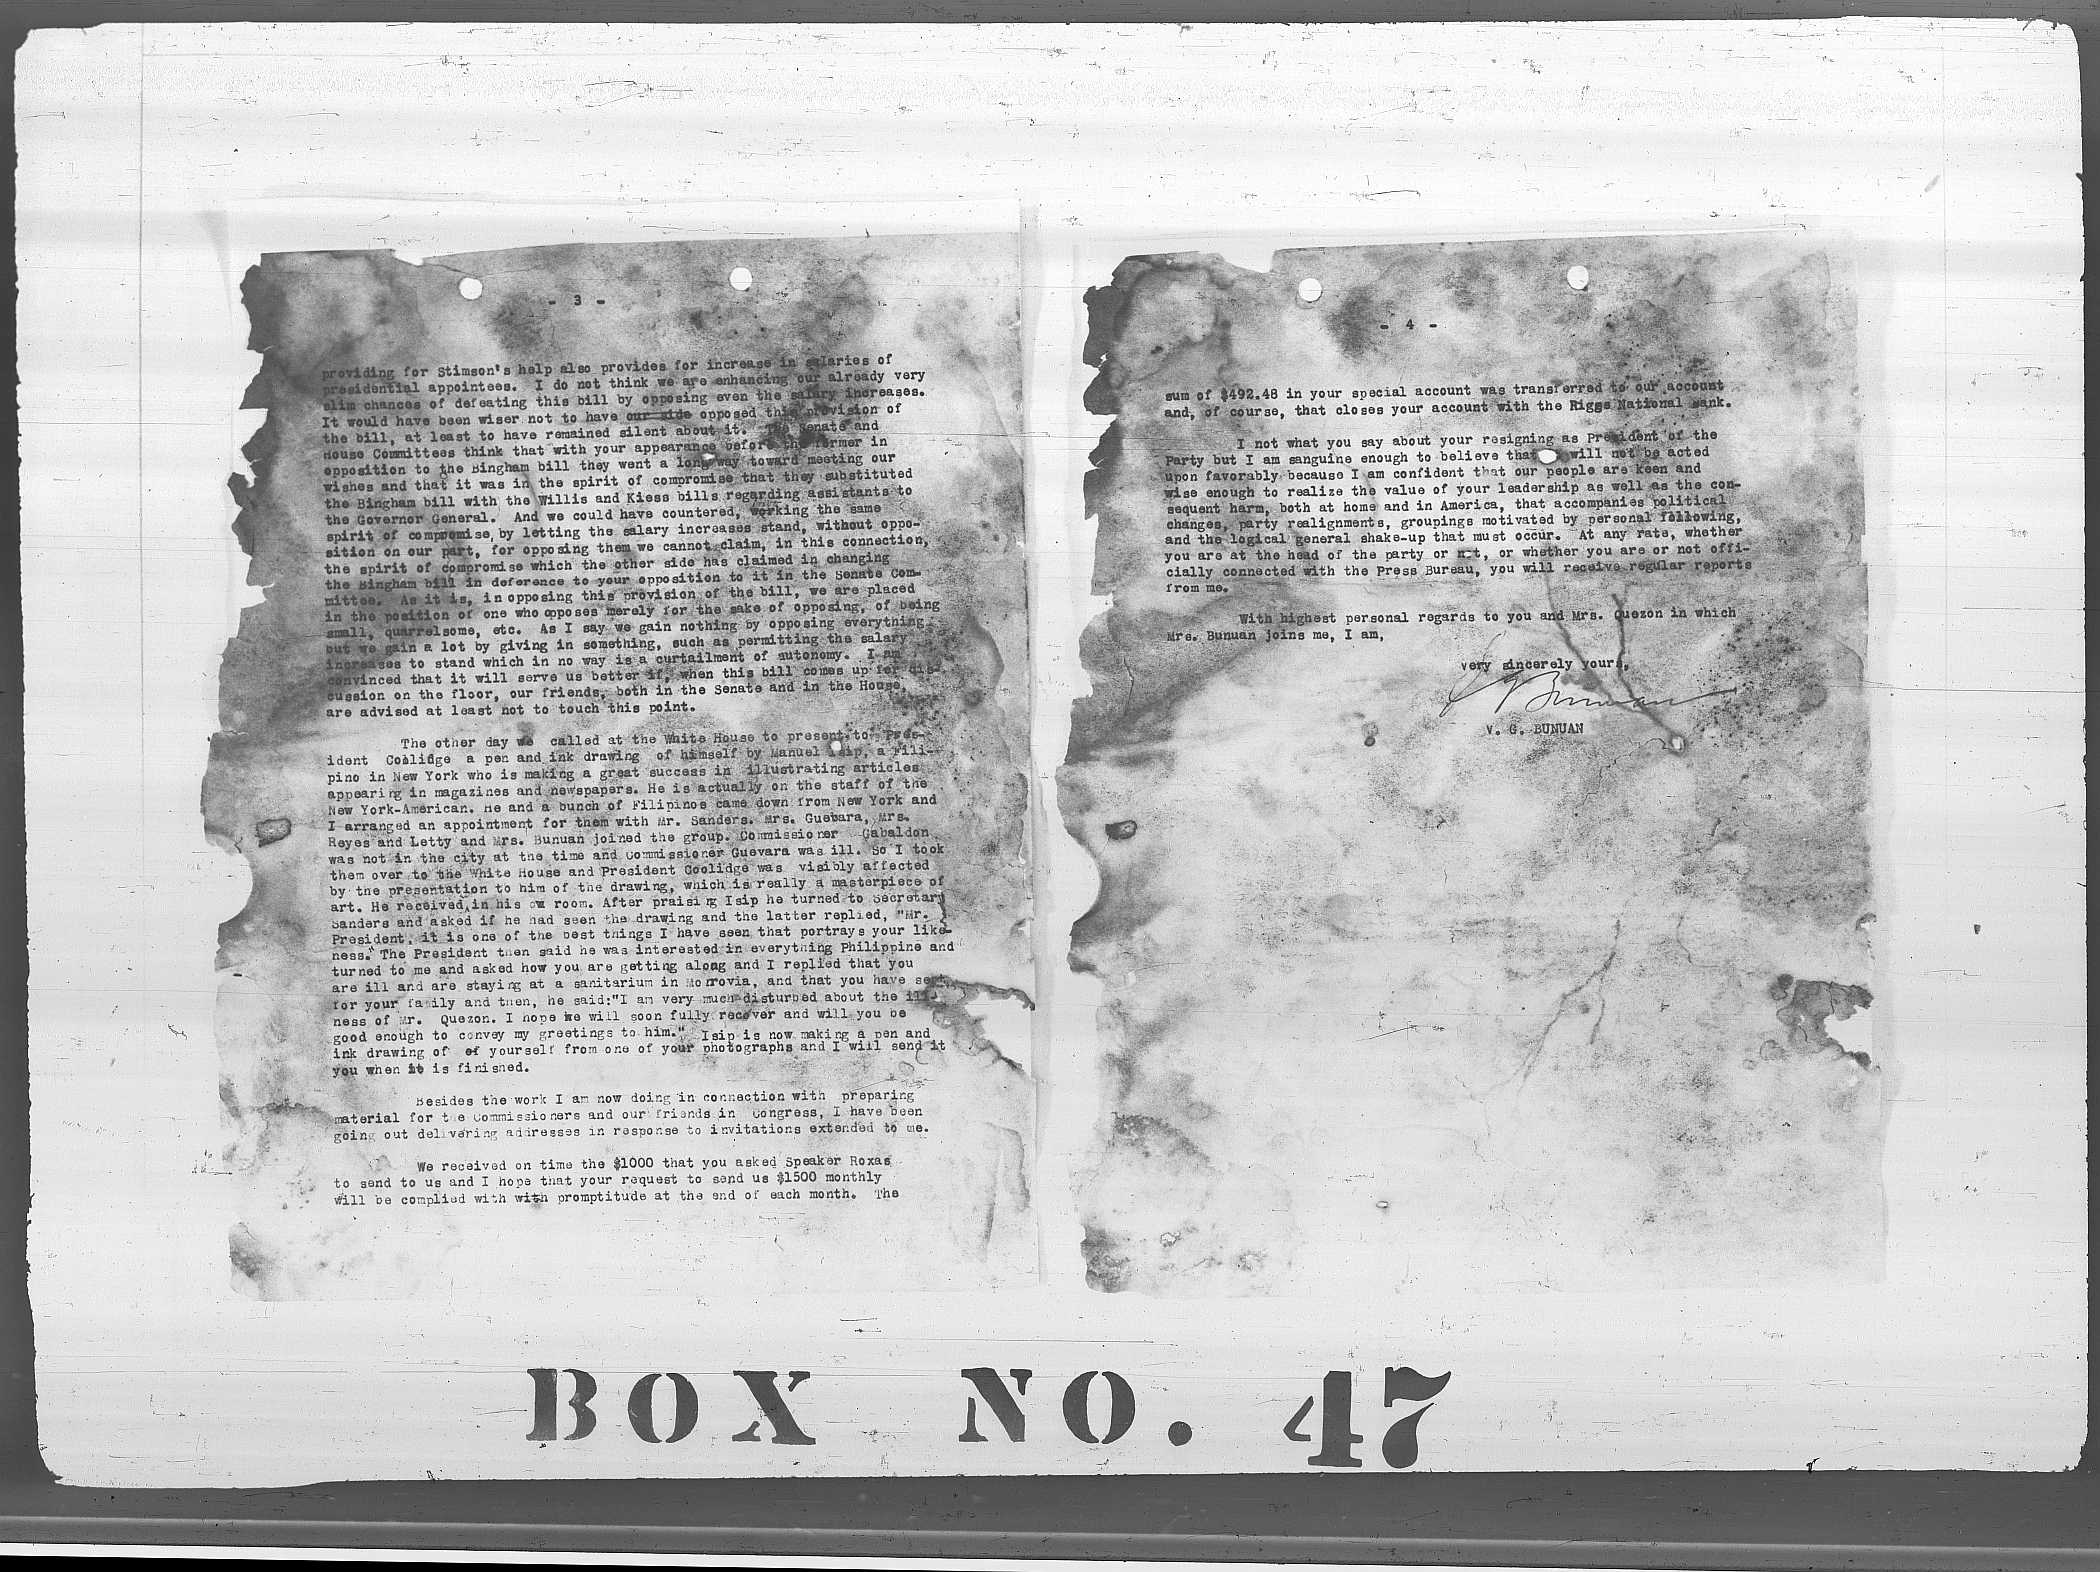 - 3 -
providing for Stimson's help also provides for increase in salaries of
presidential appointees. I do not think we are enhancing our already very
slim chances of defeating this bill by opposing even the salary increases.
It would have been wiser not to have our side opposed this provision of
the bill, at least to have remained silent about it. The Senate and
House Committees think that with your appearance before the former in
opposition to the Bingham bill they went a long way toward meeting our
wishes and that it was in the spirit of compromise that they substituted
the Bingham bill with the Willis and Kiess bills regarding assistants to
the Governor General. And we could have countered, working the same
spirit of compromise, by letting the salary increases stand, without oppo-
sition on our part, for opposing them we cannot claim, in this connection,
the spirit of compromise which the other side has claimed in changing
the Bingham bill in deference to your opposition to it in the Senate Com-
mittee. As it is, in opposing this provision of the bill, we are placed
in the position of one who opposes merely for the sake of opposing, of being
small, quarrelsome, etc. As I say we gain nothing by opposing everything
but we gain a lot by giving in something, such as permitting the salary
increases to stand which in no way is a curtailment of autonomy. I am
convinced that it will serve us better if, when this bill comes up for dis-
cussion on the floor, our friends, both in the Senate and in the House,
are advised at least not to touch this point.
The other day we called at the White House to present to Pres-
ident Coolidge a pen and ink drawing of himself by Manuel Isip, a Fili-
pino in New York who is making a great success in illustrating articles
appearing in magazines and newspapers. He is actually on the staff of the
New York-American. He and a bunch of Filipinos came down from New York and
I arranged an appointment for them with Mr. Sanders. Mrs. Guevara, Mrs.
Reyes and Letty and Mrs. Bunuan joined the group. Commissioner Gabaldon
was not in the city at the time and Commissioner Guevara was ill. So I took
them over to the White House and President Coolidge was visibly affected
by the presentation to him of the drawing, which is really a masterpiece of
art. He received in his own room. After praising Isip he turned to Secretary
Sanders and asked if he had seen the drawing and the latter replied, "Mr.
President, it is one of the best things I have seen that portrays your like-
ness." The President then said he was interested in everything Philippine and
turned to me and asked how you are getting along and I replied that you
are ill and are staying at a sanitarium in Monrovia, and that you have sent
for your family and then, he said:"I am very much disturbed about the ill-
ness of Mr. Quezon. I hope he will soon fully recover and will you be
good enough to convey my greetings to him." Isip is now making a pen and
ink drawing of of yourself from one of your photographs and I will send it
you when it is finished.
Besides the work I am now doing in connection with preparing
material for the Commissioners and our friends in Congress, I have been
going out delivering addresses in response to invitations extended to me.
We received on time the $1000 that you asked Speaker Roxas
to send to us and I hope that your request to send us $1500 monthly
will be complied with with promptitude at the end of each month. The
- 4 -
sum of $492.48 in your special account was transferred to our account
and, of course, that closes your account with the Riggs National Bank.
I not what you say about your resigning as President of the
Party but I am sanguine enough to believe that will not be acted
upon favorably because I am confident that our people are keen and
wise enough to realize the value of your leadership as well as the con-
sequent harm, both at home and in America, that accompanies political
changes, party realignments, groupings motivated by personal following,
and the logical general shake-up that must occur. At any rate, whether
you are at the head of the party or not, or whether you are or not offi-
cially connected with the Press Bureau, you will receive regular reports
from me.
With highest personal regards to you and Mrs. Quezon in which
Mrs. Bunuan joins me, I am,
Very sincerely yours,
V G Bunuan
V. G. BUNUAN
BOX NO. 47